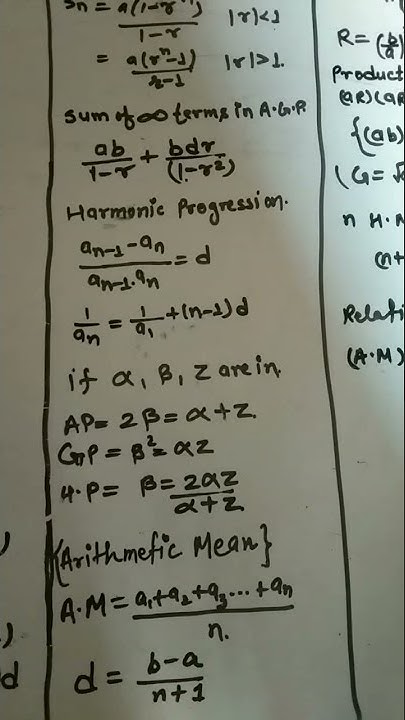 Sn = a(1-rⁿ)/1-r |r|<1
= a(rⁿ-1)/r-1 |r|>1.
Sum of ∞ terms in A.G.P.
ab/1-r + bdr/(1-r²)
Harmonic Progression.
aₙ₋₁-aₙ/aₙ₋₁.aₙ = d
1/aₙ = 1/a₁ +(n-1)d
if α, β, z are in.
AP= 2β=α+z.
GP= β²=αz
H.P= β=2αz/α+z.
{Arithmetic Mean}
A.M= a₁+a₂+a₃...+aₙ/n.
d = b-a/n+1
R=
Product
(aR)(aR
{(ab)
(G=
n H.M
(n+
Relati
(A.M)